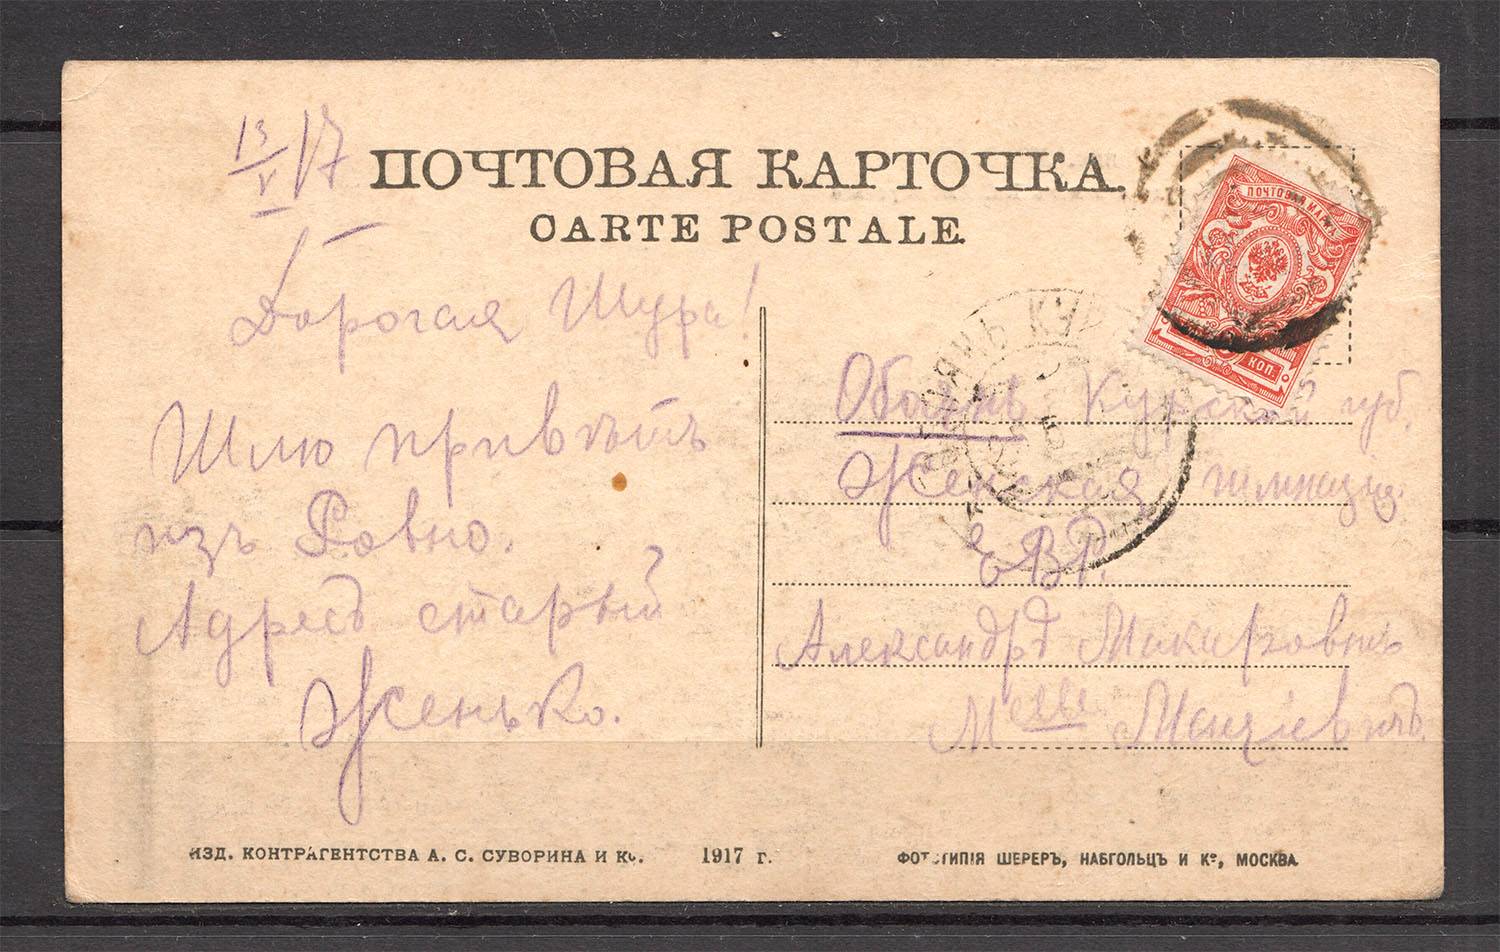 13/V 17
ПОЧТОВАЯ КАРТОЧКА.
CARTE POSTALE.
Дорогая Шура!
Шлю привѣтъ
изъ Ровно.
Адресъ старый
Женько.
ПОЧТОВАЯ МАРКА
КОП.
Обоянь Курской губ.
Женская гимназія
ЕВР.
Александрѣ Макаровнѣ
ИЗД. КОНТРАГЕНТСТВА А. С. СУВОРИНА И Ко. 1917 г.
ФОТОТИПІЯ ШЕРЕРЪ, НАБГОЛЬЦЪ И Ко, МОСКВА